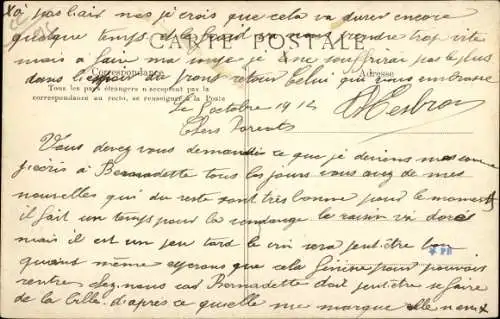 pas mais je crois que cela va durer encore
quelque temps
CARTE POSTALE
mais à faire ma je ne souffrirai pas le plus
dans l'espoir du prompt retour Celui qui vous embrasse
Correspondance
Adresse
Tous les pays étrangers n'acceptent pas la
correspondance au recto, se renseigner à la Poste
Le 8 octobre 1912
Chers Parents
Vous devez vous demander ce que je deviens mais comme
j'écris à Bernadette tous les jours vous avez de mes
nouvelles qui du reste sont très bonne pour le moment
il fait un temps pour la vendange le raisin va
mais il est un peu tard le vin sera peut-être bon
quand même espérons que cela finisse pour pouvoir
rentrer chez nous car Bernadette doit peut être se faire
de la bille d'après ce quelle me marque elle